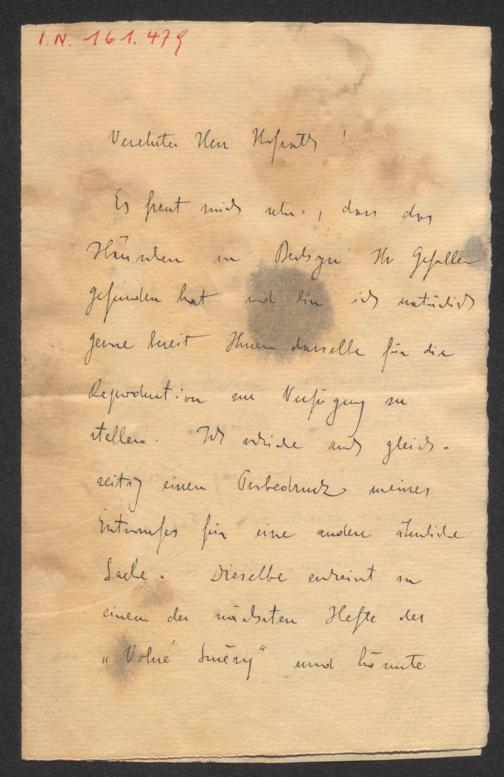 I.N. 161.479
Verehrter Herr Hofrath!
Es freut mich sehr, dass das
Häuschen in Bechyn Ihr Gefallen
gefunden hat und bin ich natürlich
gerne bereit Ihnen dasselbe für die
Reproduction zur Verfügung zu
stellen. Ich würde auch gleich-
zeitig einen Probedruck meines
Entwurfes für eine andere ähnliche
Sache. Dieselbe erscheint in
einem der nächsten Hefte des
„Volné Směry" und könnte